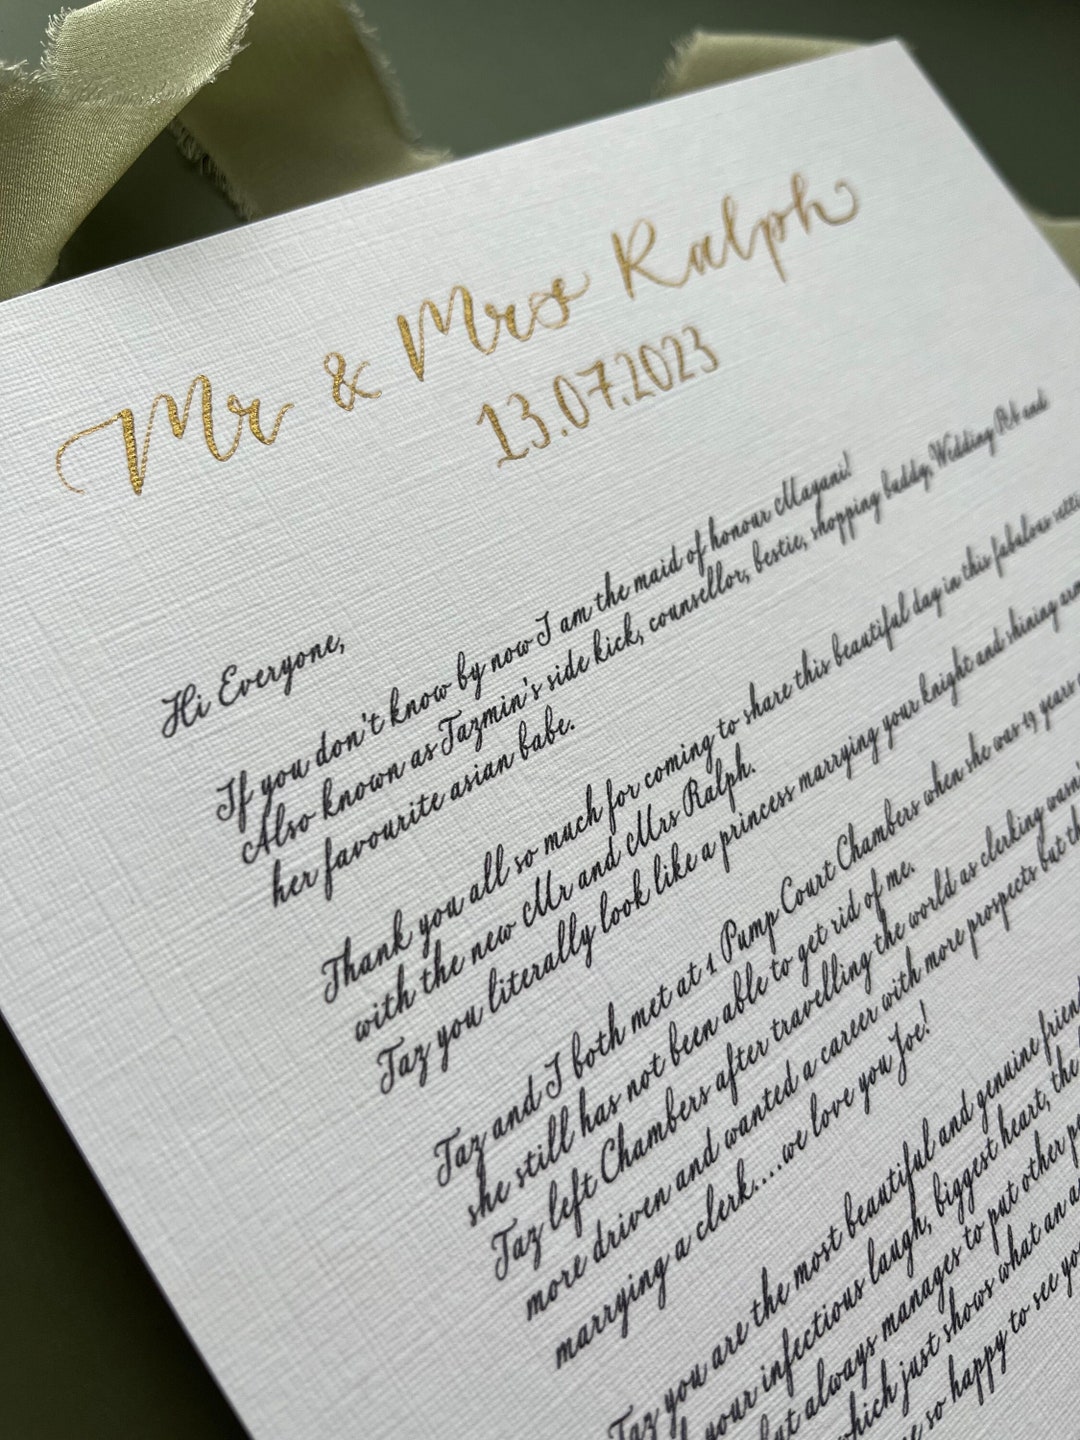 Mr & Mrs Ralph
13.07.2023
Hi Everyone,
If you don't know by now I am the maid of honour Mayani!
Also known as Tazmin's side kick, counsellor, bestie, shopping buddy, Wedding PA and
her favourite asian babe.
Thank you all so much for coming to share this beautiful day in this fabulous
with the new Mr and Mrs Ralph.
Taz you literally look like a princess marrying your knight and shining
Taz and I both met at 1 Pump Court Chambers when she was 19 years
she still has not been able to get rid of me.
Taz left Chambers after travelling the world as clerking wasn't
more driven and wanted a career with more prospects but
marrying a clerk....we love you Joe!
Taz you are the most beautiful and genuine
your infectious laugh, biggest heart, the
but always manages to put other
which just shows what an
so happy to see